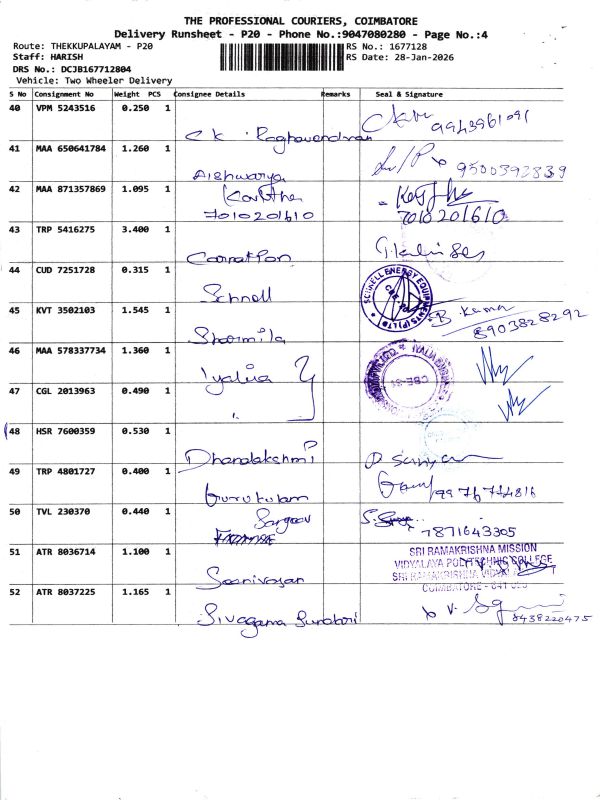 THE PROFESSIONAL COURIERS, COIMBATORE
Delivery Runsheet - P20 - Phone No.:9047080280 - Page No.:4
Route: THEKKUPALAYAM - P20
RS No.: 1677128
Staff: HARISH
RS Date: 28-Jan-2026
DRS No.: DCJB167712804
Vehicle: Two Wheeler Delivery
S No Consignment No Weight PCS Consignee Details Remarks Seal & Signature
40 VPM 5243516 0.250 1
C K Raghavendran 9943961091
41 MAA 650641784 1.260 1
Aishwarya 9500392839
42 MAA 871357869 1.095 1
Kavitha
7010201610 7010201610
43 TRP 5416275 3.400 1
44 CUD 7251728 0.315 1
Schnell SCHNELL ENERGY EQUIPMENTS (P) LTD
45 KVT 3502103 1.545 1
B. Kama 8903828292
Sharmila
46 MAA 578337734 1.360 1
Iyalia CBE-31
47 CGL 2013963 0.490 1
48 HSR 7600359 0.530 1
Dhanalakshmi
49 TRP 4801727 0.400 1
Gurukulam 9976774816
50 TVL 230370 0.440 1
7871643305
51 ATR 8036714 1.100 1
SRI RAMAKRISHNA MISSION
VIDYALAYA POLYTECHNIC COLLEGE
SRI RAMAKRISHNA
COIMBATORE - 641 020
Srinivasan
52 ATR 8037225 1.165 1
Sivagama Sundari 8438220475